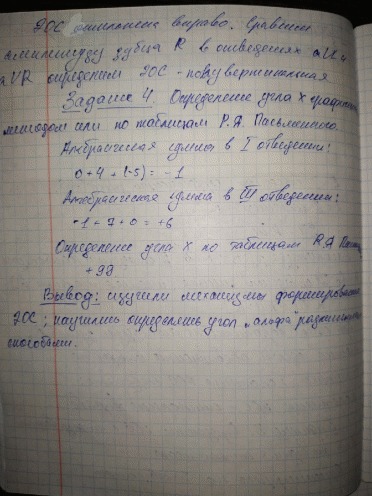 ЭОС отклонена вправо. Сравним
амплитуду зубца R в отведениях aVL и
aVR определим ЭОС - полувертикальная
Задание 4. Определение угла α графическим
методом или по таблицам Р.Я. Письменного.
Алгебраическая сумма в I отведении:
0+4+(-5) = -1
Алгебраическая сумма в III отведении:
-1+7+0 = +6
Определение угла α по таблицам Р.Я
+99
Вывод: изучили механизмы формирования
ЭОС; научились определять угол „альфа" различными
способами.